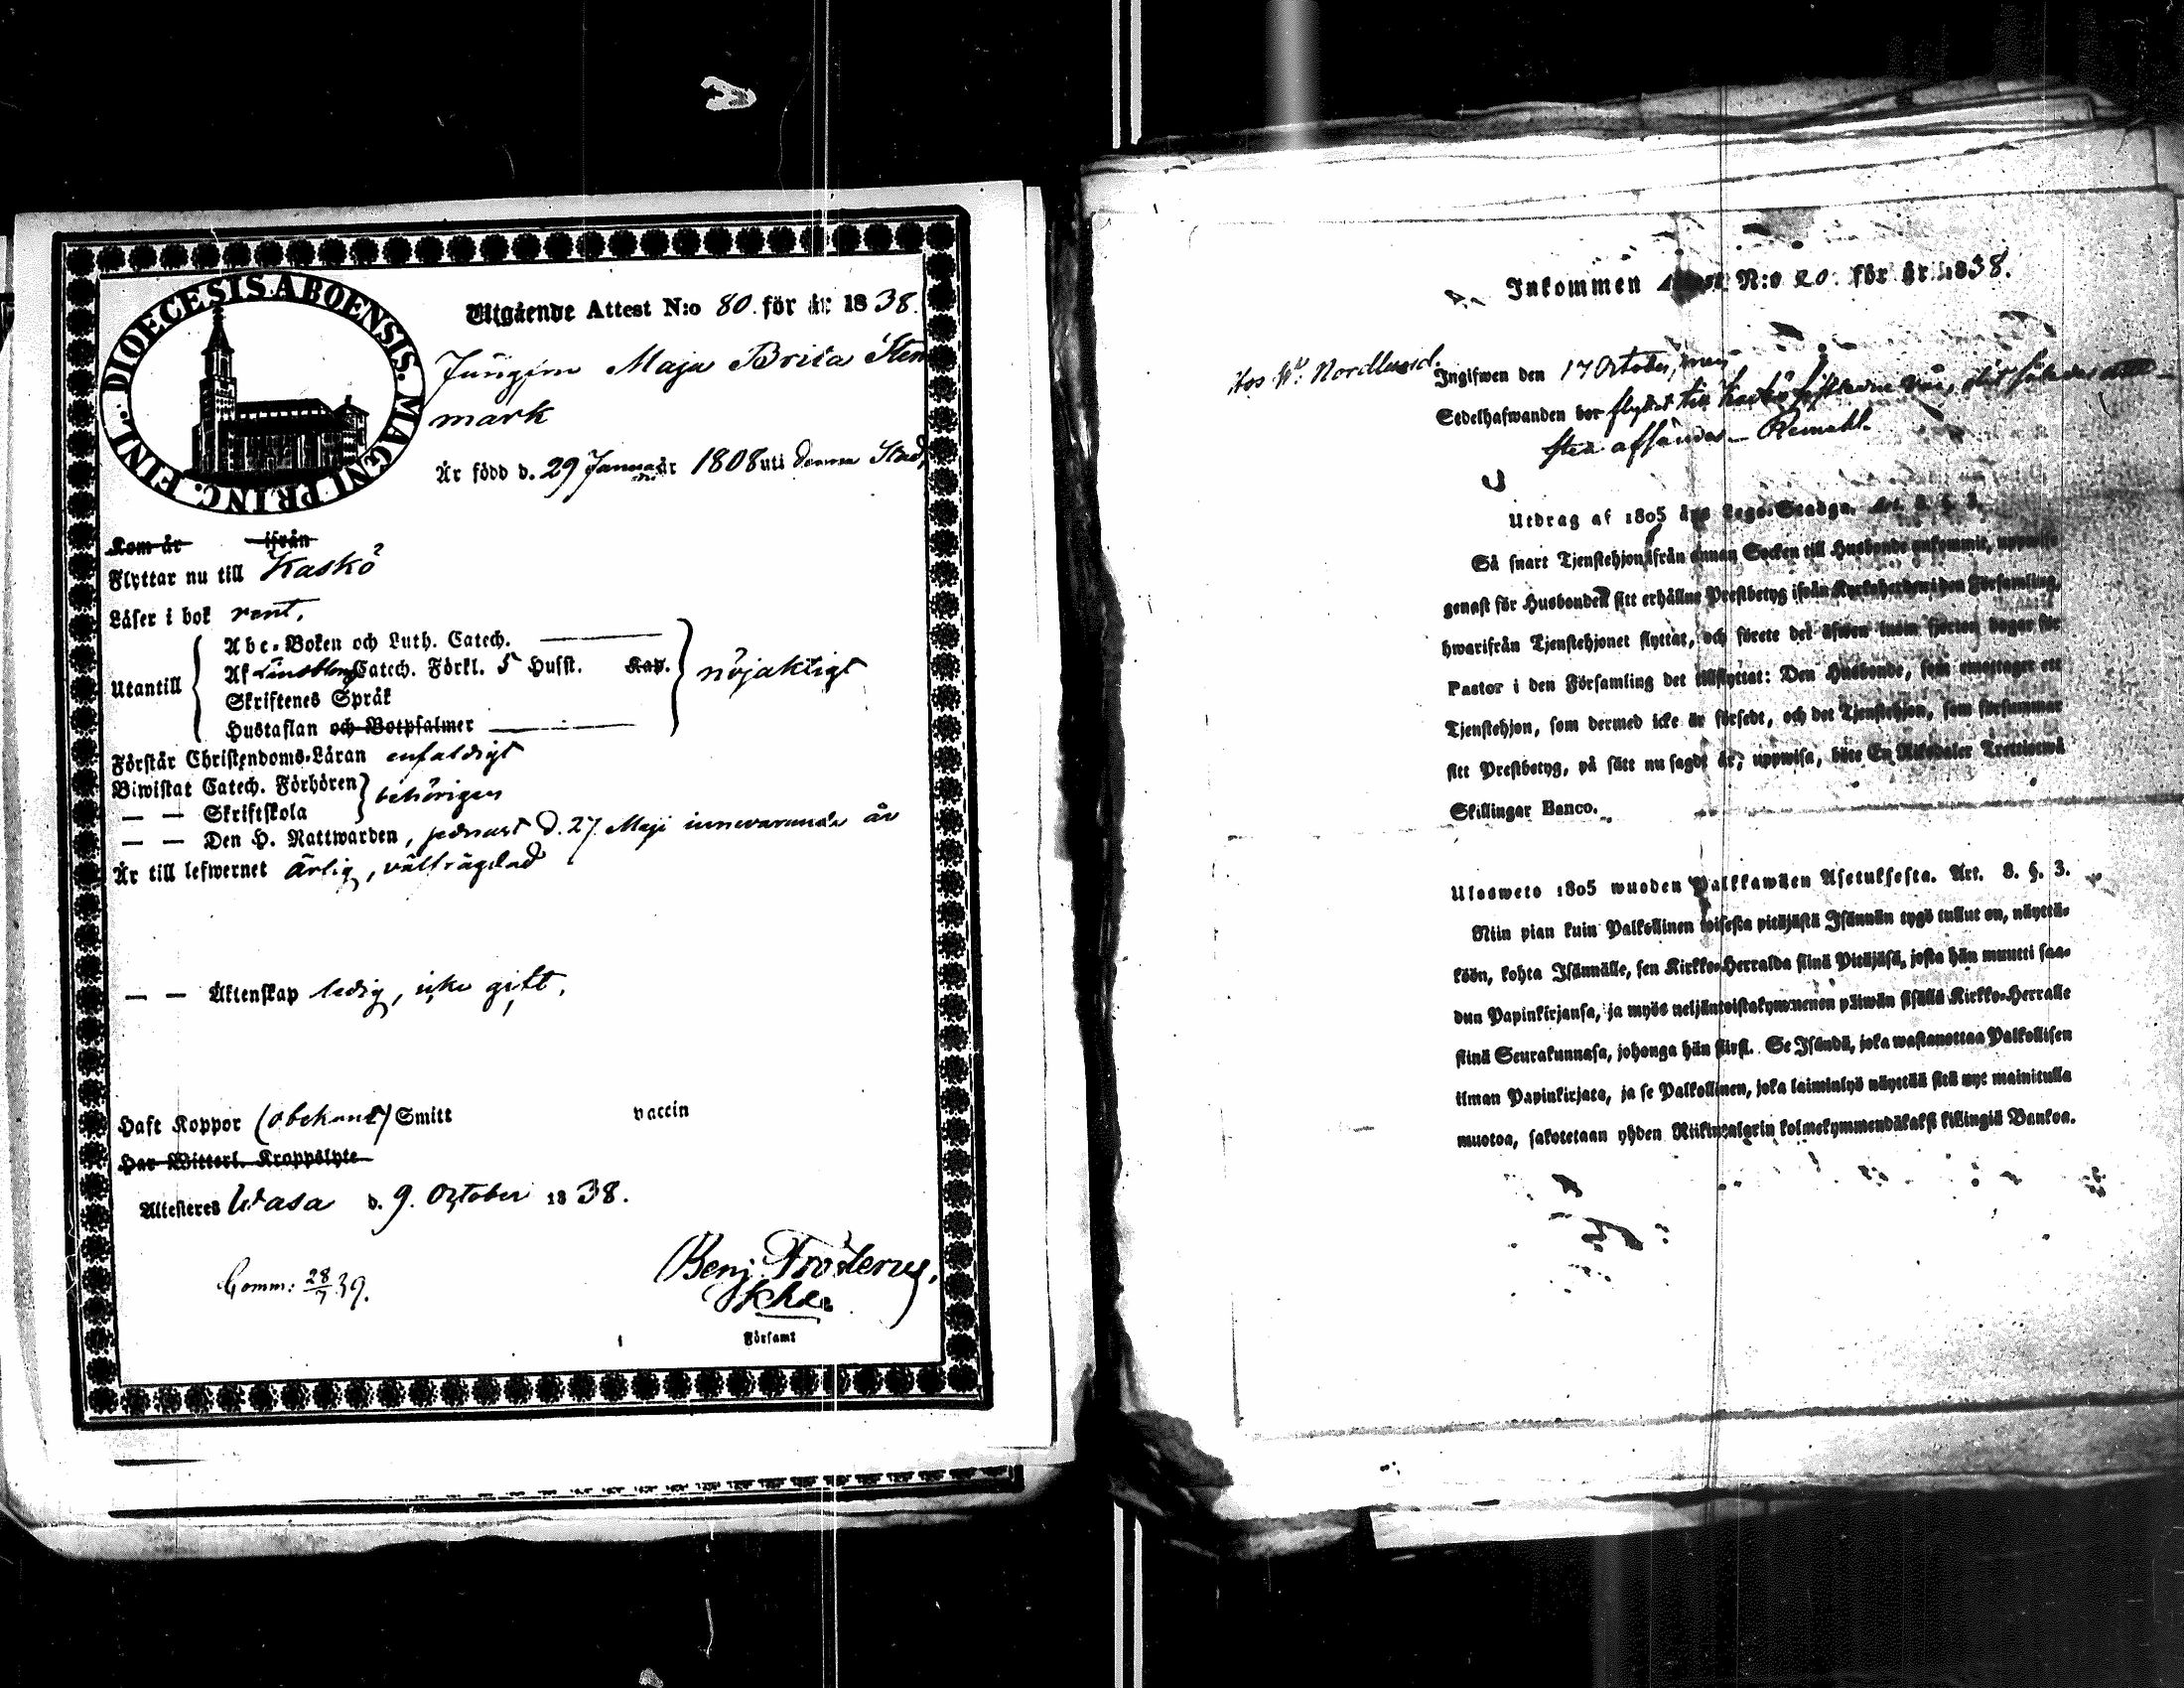 DIOECESIS ABOENSIS. MAGNI PRINC. FINL.
Utgående Attest N:o 80. för år 1838.
Jungfrun Maja Brita Sten
mark
Är född d. 29 Januarii år 1808 uti denna Stad,
Kom år ifrån
Flyttar nu till Kaskö
Läser i bok rent.
Utantill
Abc-Boken och Luth. Catech.
Af Lindbloms Catech. Förkl. 5 Husst. Kap.
Skriftenes Språk
Hustaflan och Botpsalmer
nöjaktigt
Förstår Christendoms-Läran enfaldigt
Biwistat Catech. Förhören
— — Skriftskola
behörigen
— — Den H. Nattwarden, senast d. 27 Maji innevarande år
Är till lefwernet ärlig, välfrägdad
— — Äktenskap ledig, icke gift.
Haft Koppor (obekant) Smitt vaccin
Har Witterl. Kroppslyte
Attesteres Wasa d. 9. October 1838.
Comm: 28/7 39.
Benj. Frosterus,
Khe.
Församl
Inkommen N:o 20. för år 1838.
hos Nordlund.
Ingifwen den 17 October, men
Sedelhafwanden bor flyttat till Kaskö
Utdrag af 1805 års Lego-Stadga. Art. 8. §. 3.
Så snart Tjenstehjon ifrån annan Socken till Husbonde ankommit, uppwise
genast för Husbonden sitt erhållne Prestbetyg ifrån Kyrkoherden i den Församling,
hwarifrån Tjenstehjonet flyttat, och förete det äfwen inom fjorton dagar för
Pastor i den Församling det tillflyttat: Den Husbonde, som emottager ett
Tjenstehjon, som dermed icke är försedt, och det Tjenstehjon, som försummar
sitt Prestbetyg, på sätt nu sagdt är, uppwisa, böte En Riksdaler Trettiotwå
Skillingar Banco.
Ulosweto 1805 wuoden Palkkawäen Asetuksesta. Art. 8. §. 3.
Niin pian kuin Palkollinen toisesta pitäjästä Isännän tygö tullut on, näyttä-
köön, kohta Isännälle, sen Kirkko-Herralda siinä Pitäjäsä, josta hän muutti saa-
dun Papinkirjansa, ja myös neljäntoistakymmenen päiwän sisällä Kirkko-Herralle
siinä Seurakunnasa, johonga hän siirsi. Se Isändä, joka wastanottaa Palkollisen
ilman Papinkirjata, ja se Palkollinen, joka laiminlyö näyttää sitä nyt mainitulla
muotoa, sakotetaan yhden Riikintalarin kolmekymmendäkaksi killingiä Bankoa.